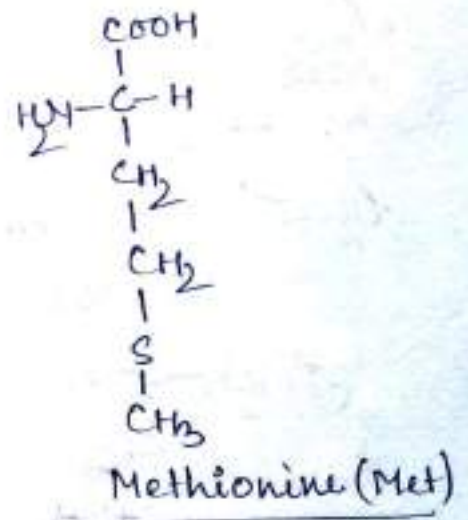 COOH
H2N-C-H
CH2
CH2
S
CH3
Methionine (Met)